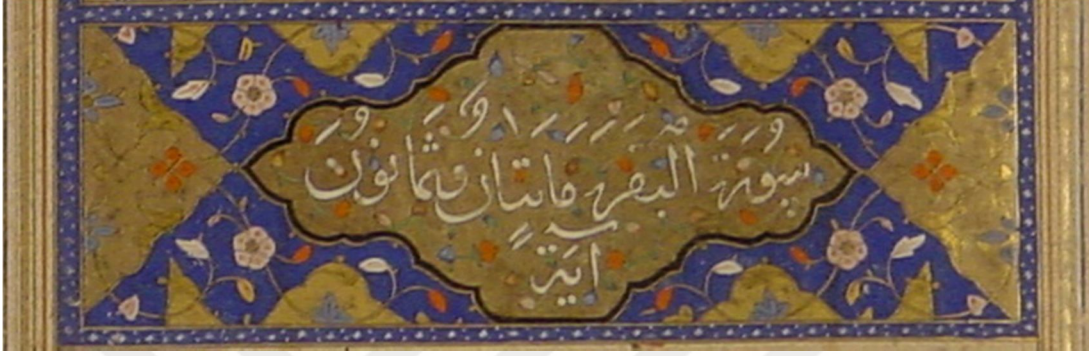 سورة البقره مایتان وثمانون
اية